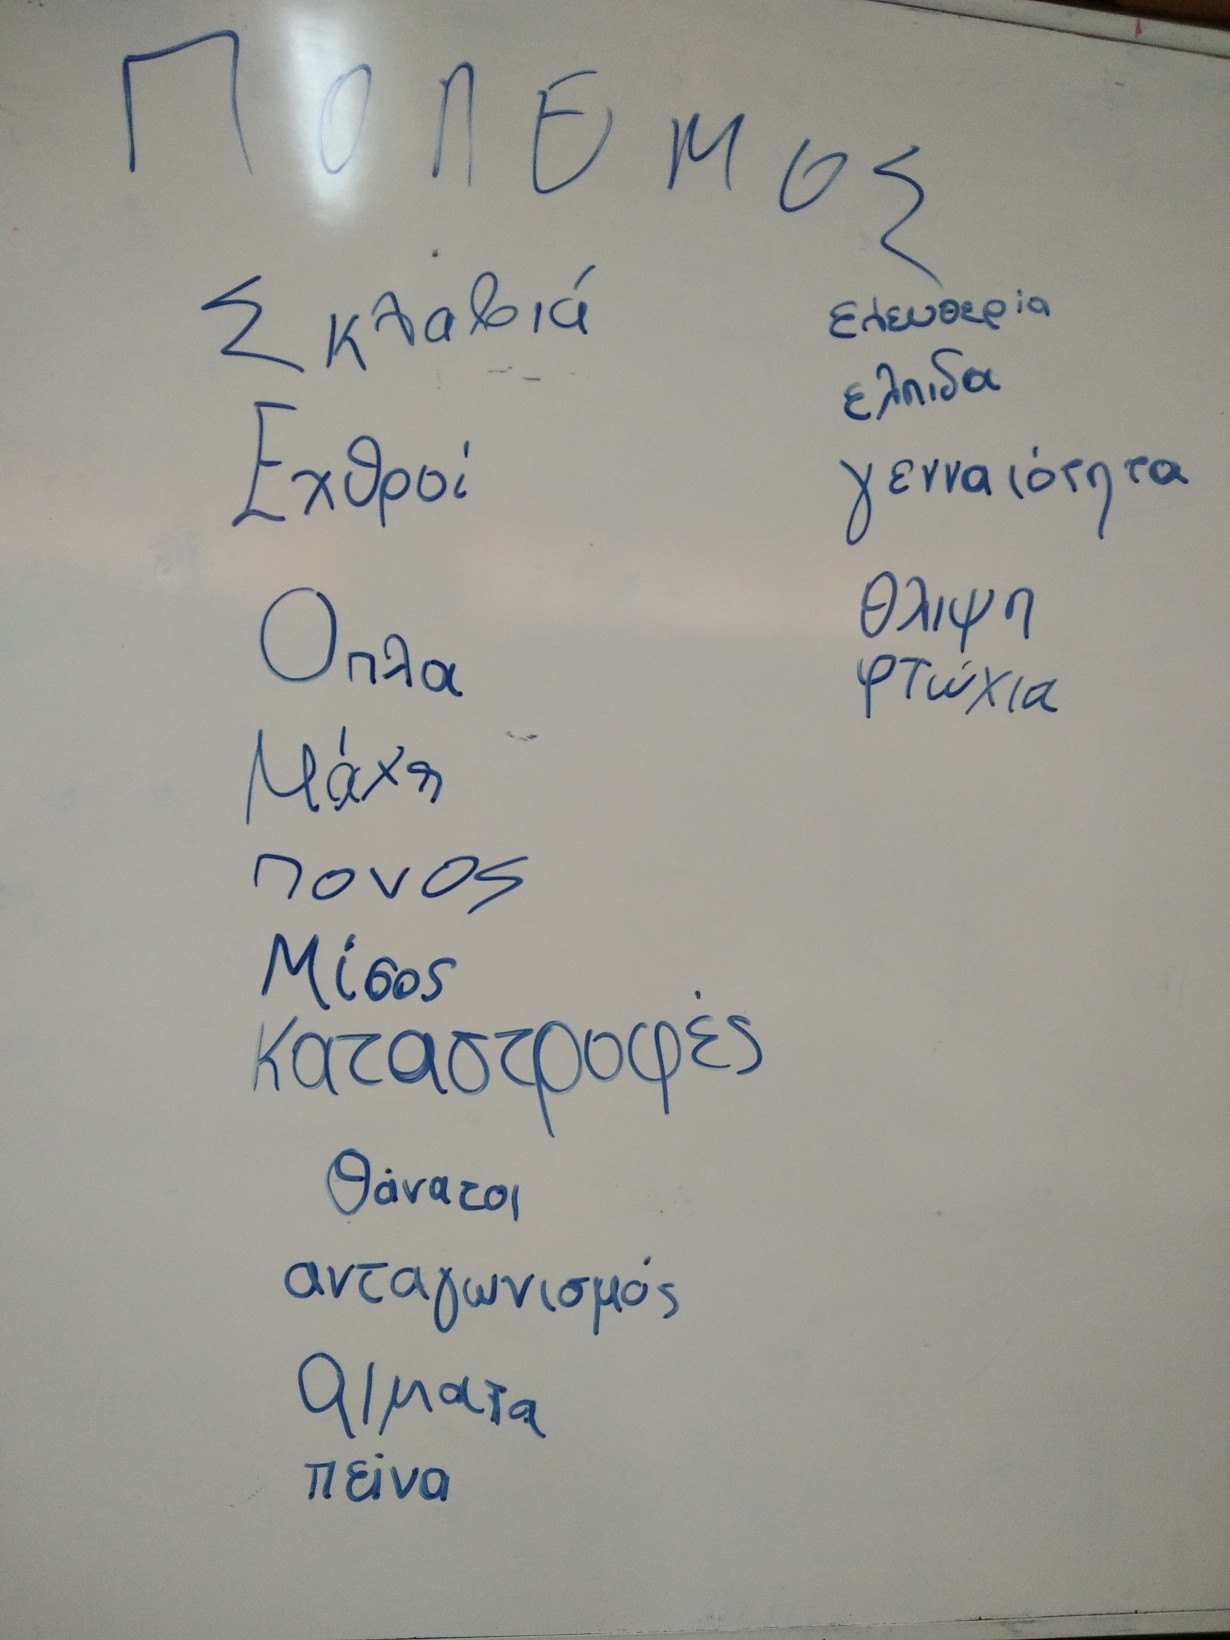 ΠΟΛΕΜΟΣ
Σκλαβιά
Εχθροί
Οπλα
Μάχη
πονος
Μίσος
καταστροφές
θάνατοι
ανταγωνισμός
αιματα
πείνα
ελευθερία
ελπιδα
γενναιότητα
θλιψη
φτώχια